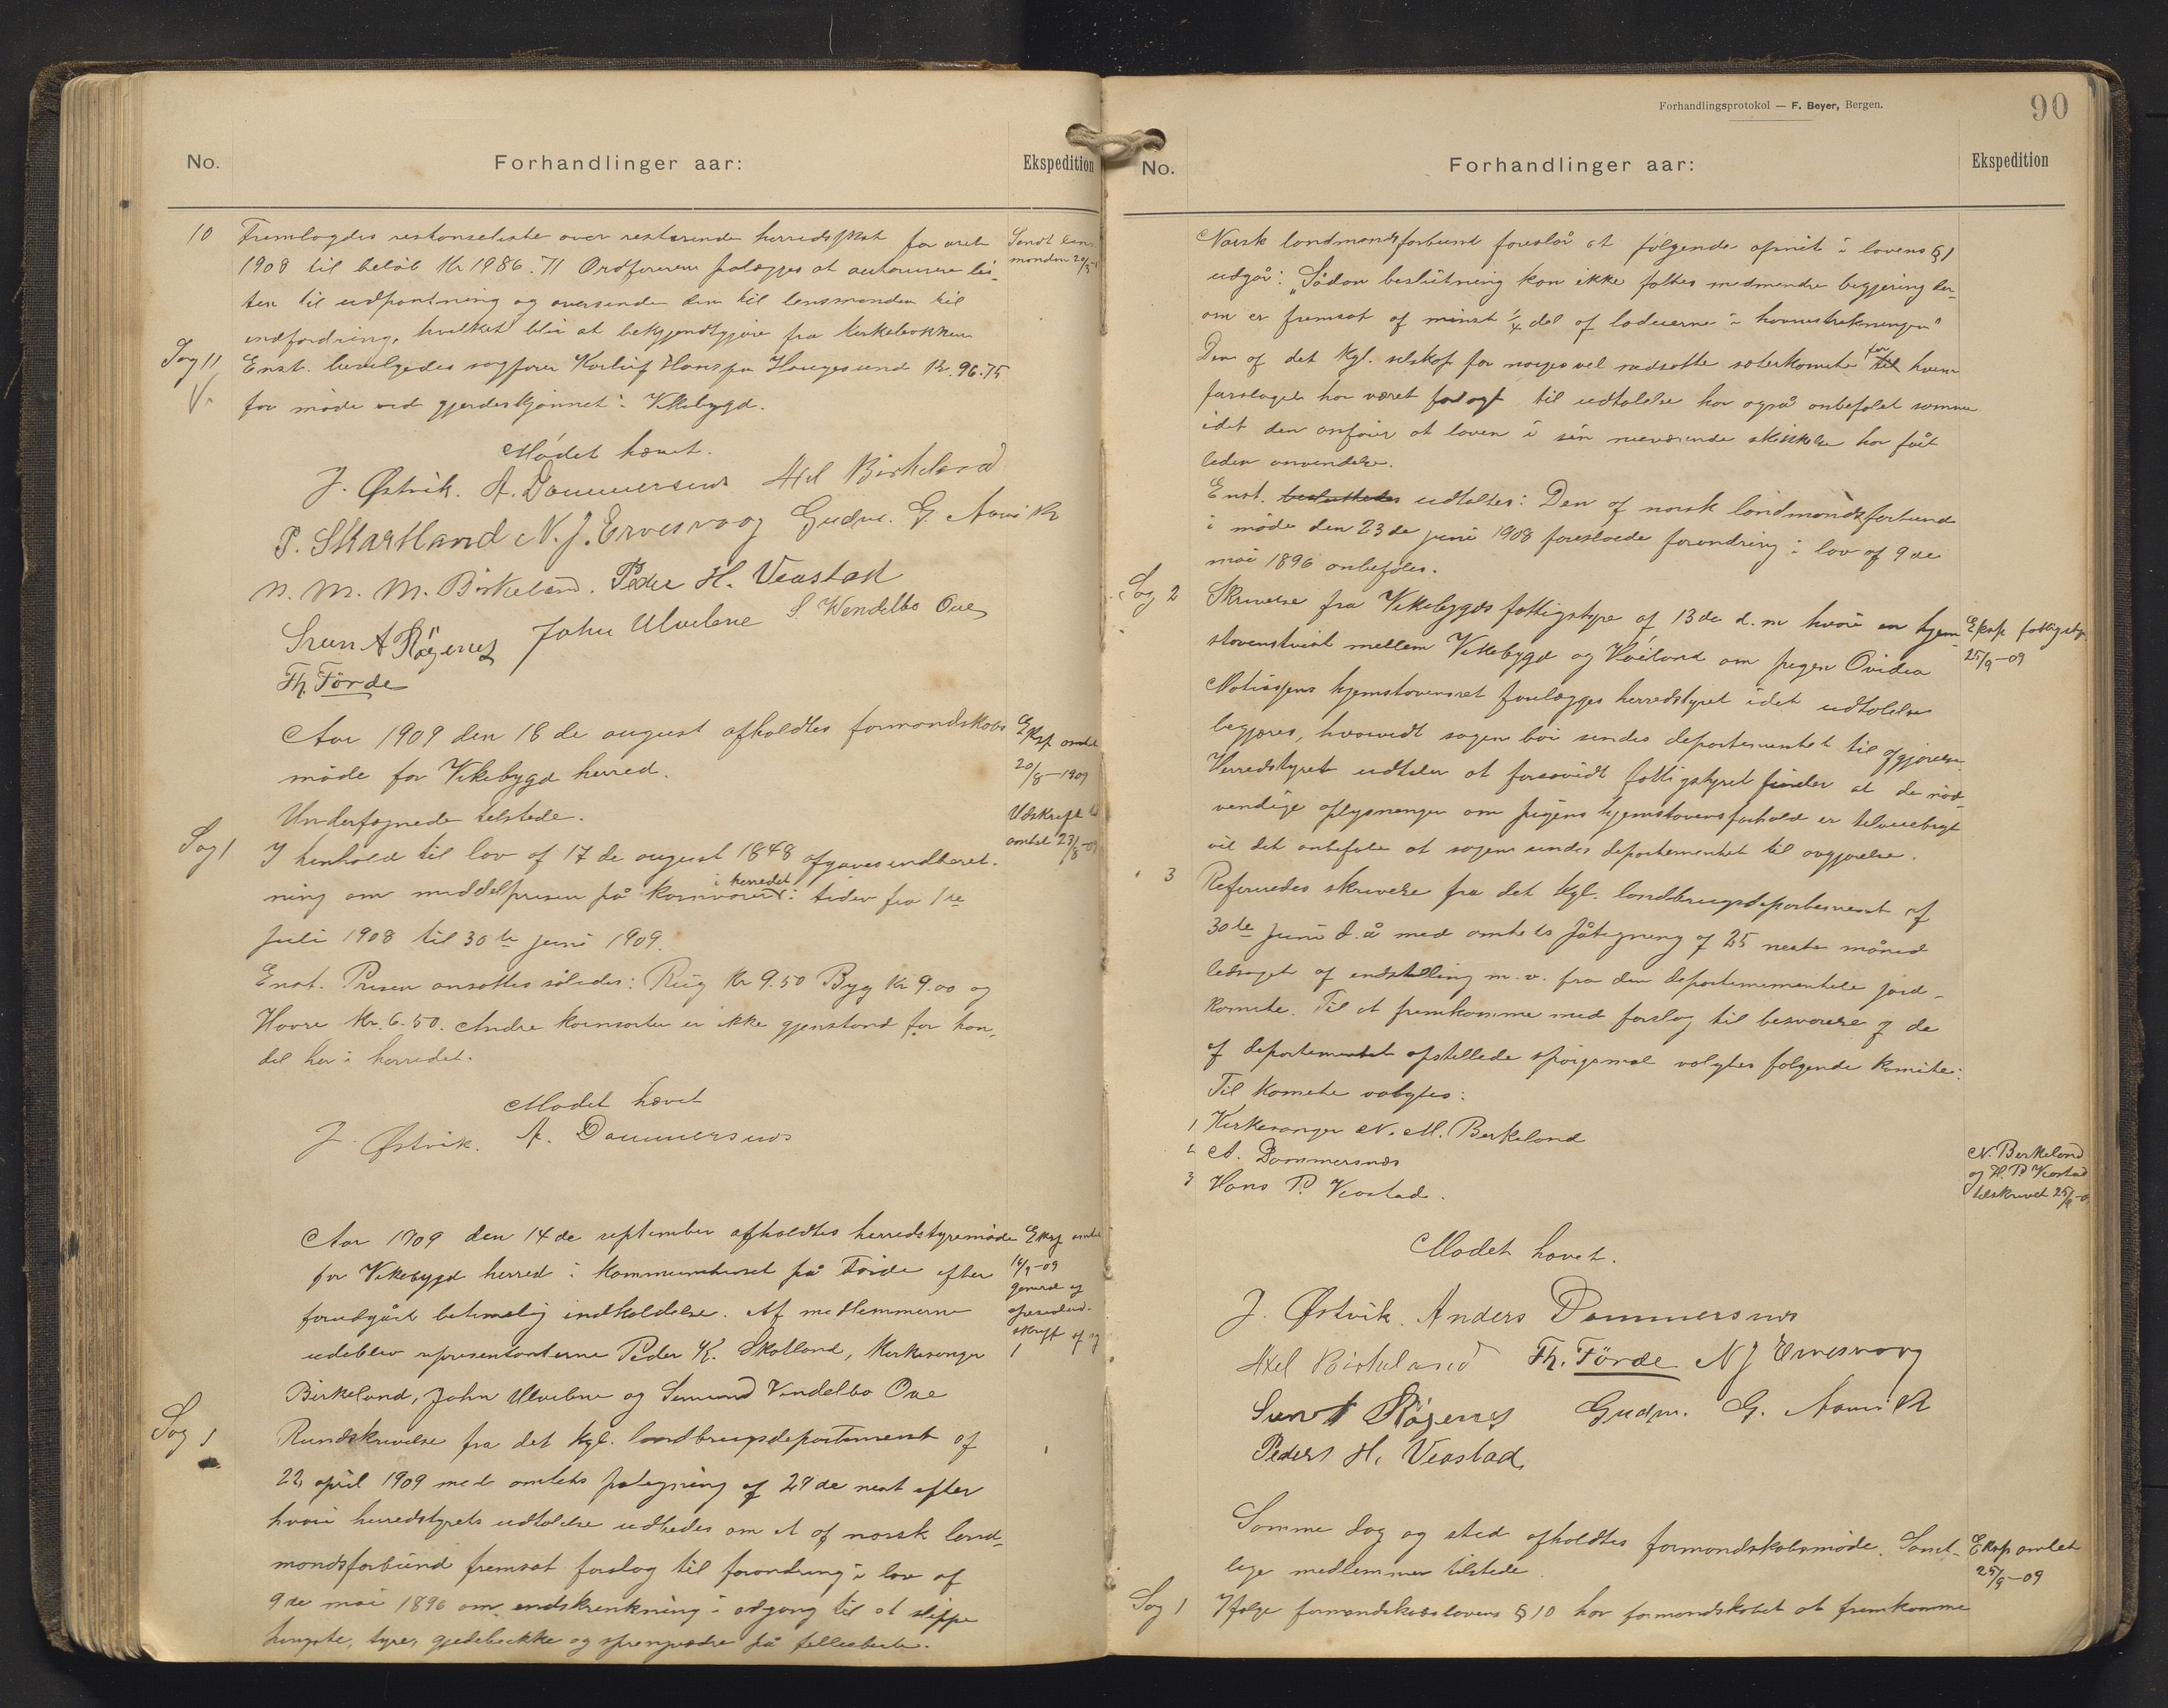 No.
Forhandlinger aar:
Ekspedition
10
Fremlagdes restanseliste over resterende herredsskat for aaret
1908 til beløb Kr 1986.71 Ordføreren pålægges at autorisere lis-
ten til udpantning og oversende den til lensmanden til
indfordring, hvilket blir at bekjendtgjøre fra kirkebakken
Sendt lens-
manden 20/5
Sag 11
Enst. beviljedes sagfører Hansson Haugesund Kr. 96.75
for møde ved gjerdeskjønnet i Vikebygd.
Mødet hævet.
J. Østvik. A. Dommersnes Axel Birkeland
P. Skartland N. J. Ervesvaag Gudm. G. Aavik
N. M. M. Birkeland. Peder H. Veastad
Sven A Rögenes John Ulvebne S. Wendelbo Ove
Th. Förde
Aar 1909 den 18 de august afholdtes formandskabs
møde for Vikebygd herred.
Undertegnede tilstede.
Eksp amtet
20/8-1909
Udskrift til
amtet 23/8-09
Sag 1
I henhold til lov af 17 de august 1848 afgaves indberet-
ning om middelprisen på kornvarer i herredet i tiden fra 1ste
Juli 1908 til 30te juni 1909.
Enst. Prisen ansattes således: Rug Kr 9.50 Byg Kr 9.00 og
Havre Kr. 6.50. Andre kornsorter er ikke gjenstand for han-
del her i herredet.
Mødet hævet
J. Østvik. A. Dommersnes
Aar 1909 den 14 de september afholdtes herredstyremøde
for Vikebygd herred i kommunehuset på Førde efter
forudgået betimelig indkaldelse. Af medlemmerne
udeblev representanterne Peder K. Skatland, Kirkesanger
Birkeland, John Ulvebne og Vendelbo Ove
Eksp amtet
16/9-09
1
Sag 1
Rundskrivelse fra det kgl. landbrugsdepartement af
22 april 1909 med amtets påtegning af 29 de nest efter
hvori herredstyrets udtalelse udbedes om et af norsk land-
mandsforbund fremsat forslag til forandring i lov af
9 de mai 1896 om indskrenkning i adgang til at slippe
hingste, tyre, gjedebukke og springvædre på fellesbeite.
Forhandlingsprotokol — F. Beyer, Bergen.
90
No.
Forhandlinger aar:
Ekspedition
Norsk landmandsforbund foreslår at følgende afsnit i lovens § 1
udgår: "Sådan beslutning kan ikke fattes medmindre begjæring der-
om er fremsat af minst 1/4 del af lodeierne i havnestrekningen"
Den af det kgl. selskap for norges vel nedsatte sæterkomite for til hvem
forslaget har været forlagt til udtalelse har også anbefalet samme
idet den anfører at loven i sin nuværende skikkelse har fået
liden anvendelse.
Enst. besluttedes udtaltes: Den af norsk landmandsforbund
i møde den 23 de juni 1908 foreslaaede forandring i lov af 9 de
mai 1896 anbefales.
Sag 2
Skrivelse fra Vikebygds fattigstyre af 13 de d. m hvori en hjem-
stavnstvist mellem Vikebygd og Våiland om pigen Ovidia
Matiassens hjemstavnsret forelægges herredstyret idet udtalelse
begjæres, hvorvidt sagen bør sendes departementet til afgjørelse.
Herredstyret udtaler at forsåvidt fattigstyret finder at de nød-
vendige oplysninger om pigens hjemstavnsforhold er tilveiebragt
vil det anbefale at sagen sendes departementet til avgjørelse.
Eksp fattigstyr
25/9-09
3
Refereredes skrivelse fra det kgl. landbrugsdepartement af
30te juni d. å med amtets påtegning af 25 neste måned
ledsaget af indstilling m. v. fra den departementale jord-
komite. Til at fremkomme med forslag til besvarelse af de
af departementet opstillede spørgsmål valgtes følgende komite:
Til komite valgtes:
1 Kirkesanger N. M. Birkeland
2 A. Dommersnæs
3 Hans P. Veastad.
N. Birkeland
og H. P. Veastad
tilskrevet 25/9-0
Mødet hævet.
J. Østvik. Anders Dommersnes
Axel Birkeland Th. Förde N J Ervesvaag
Sven A Rögenes Gudm. G. Aavik
Peder H. Veastad,
Samme dag og sted afholdtes formandskabsmøde. Samt-
lige medlemmer tilstede.
Eksp amtet
25/9-09
Sag 1
Ifølge formandskabslovens § 10 har formandskabet at fremkomme